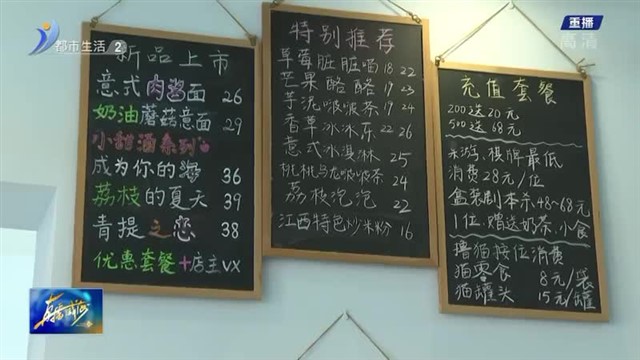 都市生活 2
重播
高清
新品上市
意式肉酱面 26
奶油蘑菇意面 29
小甜酒系列
成为你的海 36
荔枝的夏天 39
青提之恋 38
优惠套餐+店主VX
特别推荐
草莓脏脏喵 18 22
芒果酪酪 17 23
芋泥啵啵茶 19 24
香草冰冰乐 22 26
意式冰淇淋 25
桃桃乌龙啵啵茶 24
荔枝泡泡 22
江西特色炒米粉 16
充值套餐
200送20元
500送68元
桌游、棋牌最低
消费28元/位
盒装剧本杀48-68元
1位,赠送奶茶、小食
撸猫按位消费
猫零食 8元/袋
猫罐头 15元/罐